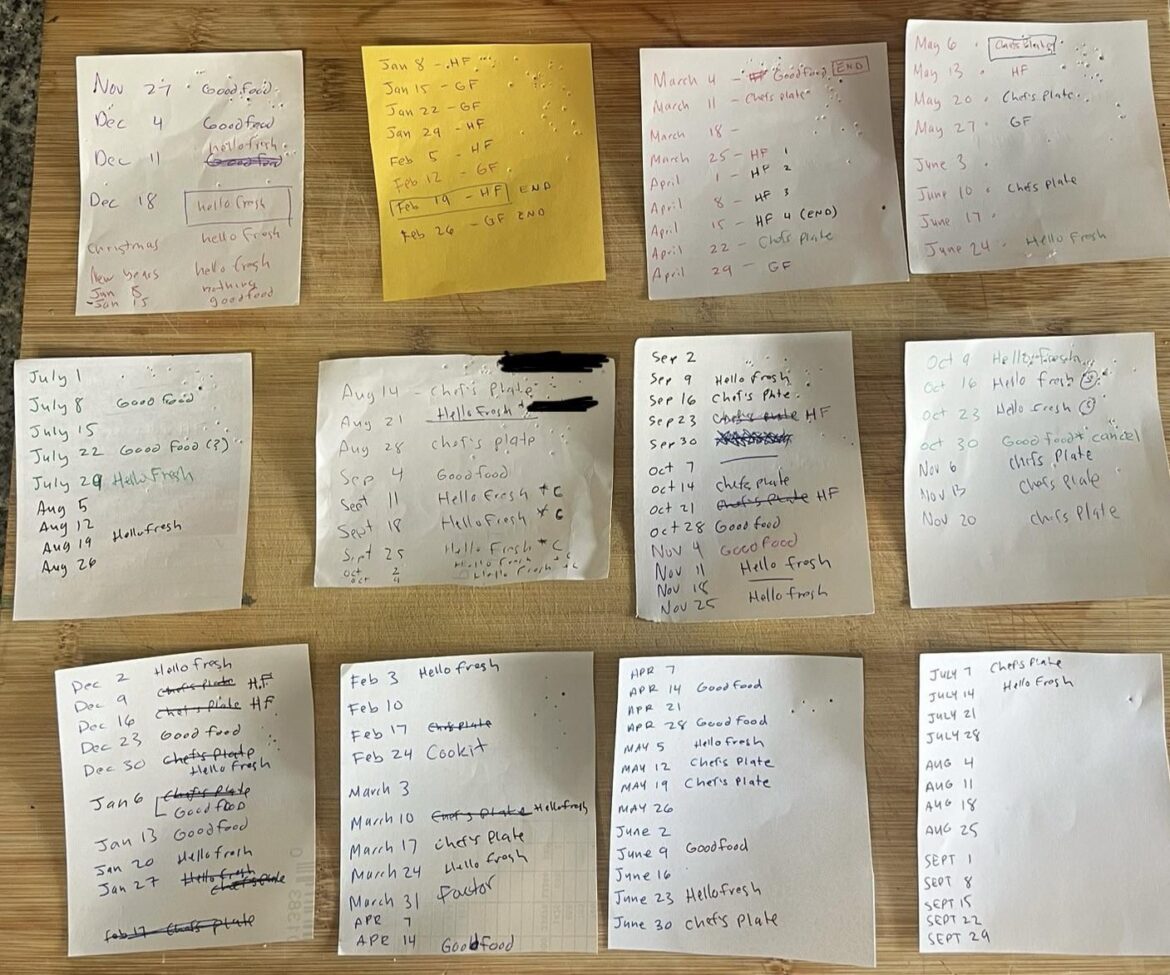 Nov 27 · Goodfood
Dec 4 Goodfood
Dec 11 hellofresh
Goodfood
Dec 18 hello fresh
Christmas hello fresh
New years hello fresh
Jan 8 nothing
Jan 15 goodfood
Jan 8 - HF
Jan 15 - GF
Jan 22 - GF
Jan 29 - HF
Feb 5 - HF
Feb 12 - GF
Feb 19 - HF END
Feb 26 - GF END
March 4 - Goodfood END
March 11 - Chefs plate
March 18 -
March 25 - HF 1
April 1 - HF 2
April 8 - HF 3
April 15 - HF 4 (END)
April 22 - Chefs plate
April 29 - GF
May 6 · Chefs plate
May 13 · HF
May 20 · Chefs plate
May 27 · GF
June 3 ·
June 10 · Chefs plate
June 17 ·
June 24 · Hello Fresh
July 1
July 8 Good Food
July 15
July 22 Good Food (?)
July 29 Hello Fresh
Aug 5
Aug 12
Aug 19 Hellofresh
Aug 26
Aug 14 - chef's plate
Aug 21 Hello Fresh *
Aug 28 chef's plate
Sep 4 Goodfood
Sept 11 Hello Fresh * C
Sept 18 Hello Fresh * C
Sept 25 Hello Fresh * C
Oct 2 Hello Fresh * C
Oct 4 Hello Fresh * C
Sep 2
Sep 9 Hello fresh
Sep 16 Chef's Plate
Sep 23 Chef's Plate HF
Sep 30
Oct 7
Oct 14 chefs plate
Oct 21 Chef's Plate HF
Oct 28 Good food
Nov 4 GOOD FOOD
Nov 11 Hello fresh
Nov 18
Nov 25 Hello fresh
Oct 9 Hello Fresh
Oct 16 Hello fresh
Oct 23 Hello fresh
Oct 30 Good food * cancel
Nov 6 chefs plate
Nov 13 chefs plate
Nov 20 chefs plate
Dec 2 Hello fresh
Dec 9 Chef's Plate H.F
Dec 16 Chef's Plate HF
Dec 23 Good food
Dec 30 Chef's Plate
Hello fresh
Jan 6 Chef's Plate
Good food
Jan 13 Goodfood
Jan 20 Hello fresh
Jan 27 Hello fresh
Chef's Plate
Feb 17 Chef's Plate
Feb 3 Hello fresh
Feb 10
Feb 17 Chef's Plate
Feb 24 Cookit
March 3
March 10 Chef's Plate Hellofresh
March 17 chef's plate
March 24 Hello fresh
March 31 Factor
APR 7
APR 14 Goodfood
APR 7
APR 14 Goodfood
APR 21
APR 28 Good food
MAY 5 Hello fresh
MAY 12 Chef's Plate
MAY 19 Chef's Plate
MAY 26
June 2
June 9 Goodfood
June 16
June 23 Hellofresh
June 30 chef's plate
JULY 7 Chef's Plate
JULY 14 Hello Fresh
JULY 21
JULY 28
AUG 4
AUG 11
AUG 18
AUG 25
SEPT 1
SEPT 8
SEPT 15
SEPT 22
SEPT 29